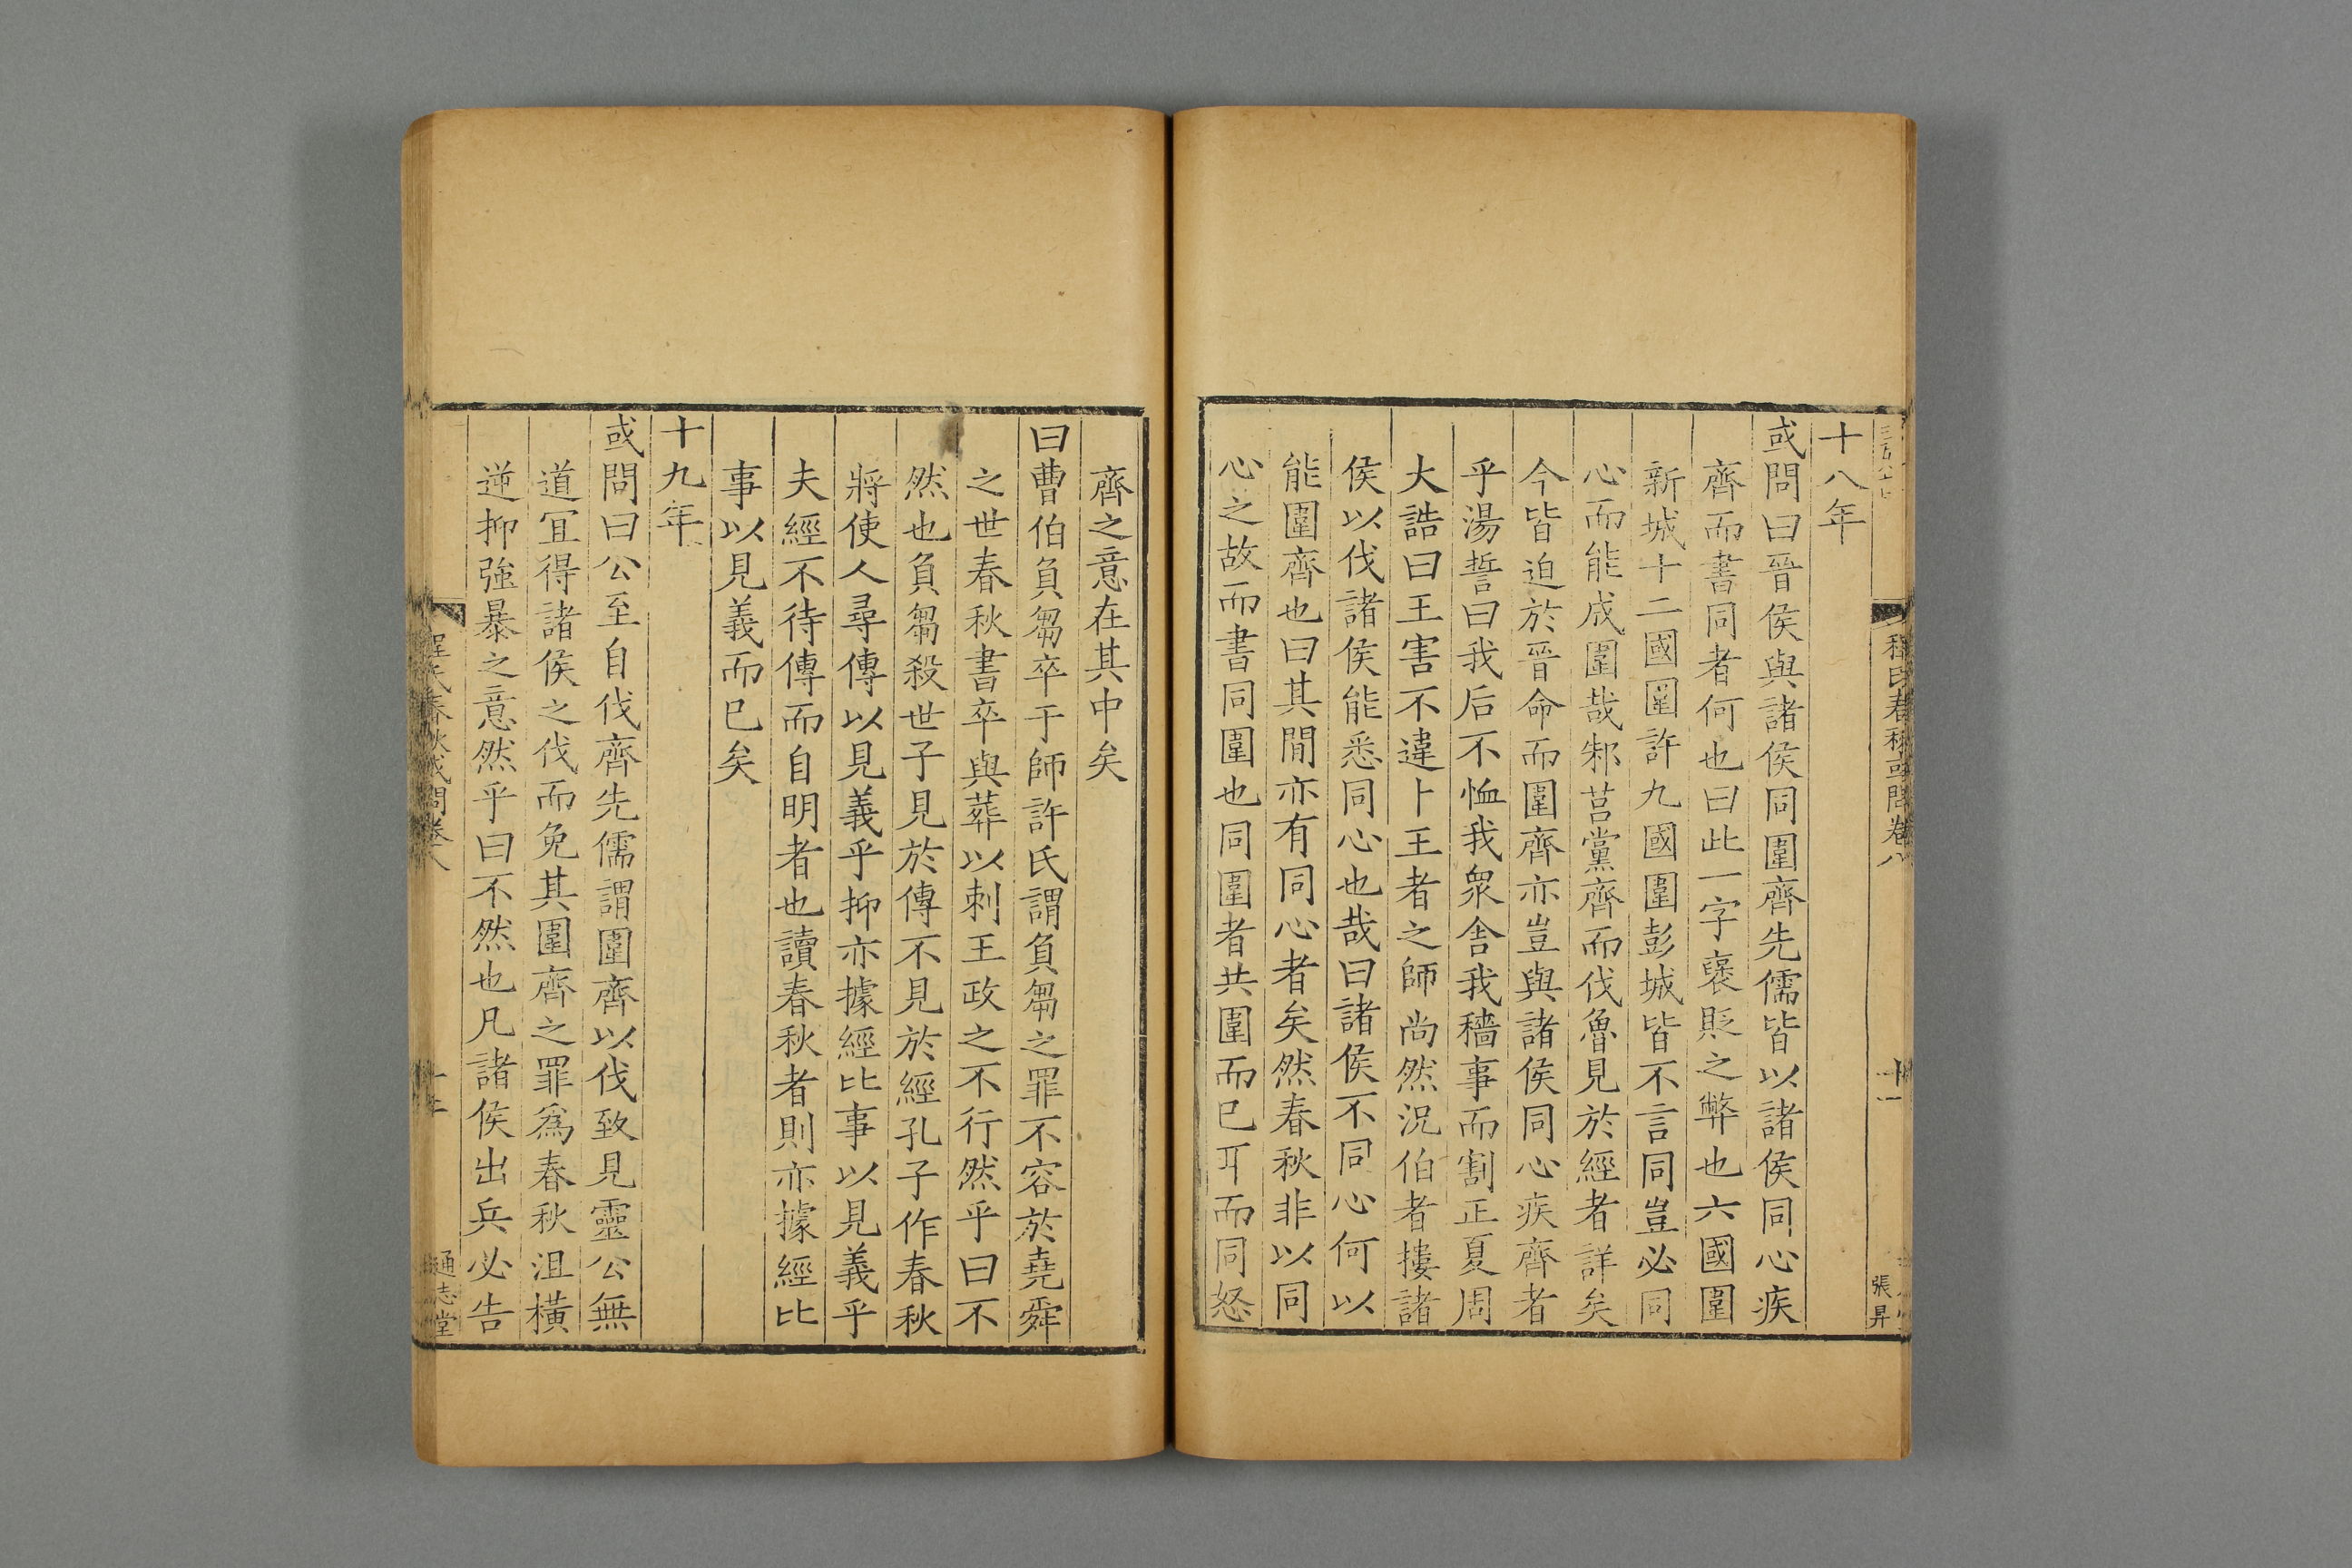 十八年
或問曰晉侯與諸侯同圍齊先儒皆以諸侯同心疾
齊而書同者何也曰此一字襃貶之弊也六國圍
新城十二國圍許九國圍彭城皆不言同豈必同
心而能成圍哉邾莒黨齊而伐魯見於經者詳矣
今皆迫於晉命而圍齊亦豈與諸侯同心疾齊者
乎湯誓曰我后不恤我衆舍我穡事而割正夏周
大誥曰王害不違卜王者之師尚然況伯者摟諸
侯以伐諸侯能悉同心也哉曰諸侯不同心何以
能圍齊也曰其閒亦有同心者矣然春秋非以同
心之故而書同圍也同圍者共圍而已耳而同怒
程氏春秋或問卷八
十一
張昇
齊之意在其中矣
曰曹伯負芻卒于師許氏謂負芻之罪不容於堯舜
之世春秋書卒與葬以刺王政之不行然乎曰不
然也負芻殺世子見於傳不見於經孔子作春秋
將使人尋傳以見義乎抑亦據經比事以見義乎
夫經不待傳而自明者也讀春秋者則亦據經比
事以見義而已矣
十九年
或問曰公至自伐齊先儒謂圍齊以伐致見靈公無
道宜得諸侯之伐而免其圍齊之罪爲春秋沮橫
逆抑強暴之意然乎曰不然也凡諸侯出兵必告
程氏春秋或問卷八
通志堂